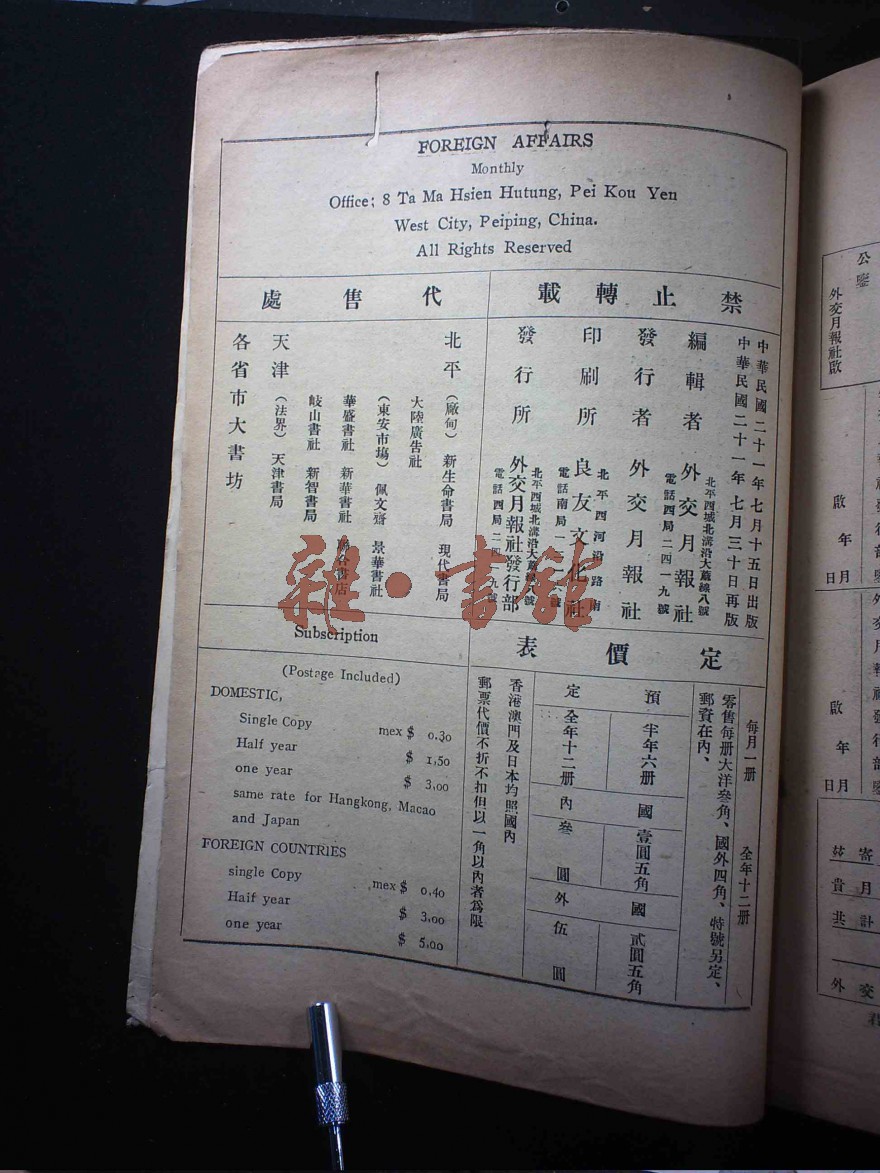 FOREIGN AFFAIRS
Monthly
Office; 8 Ta Ma Hsien Hutung, Pei Kou Yen
West City, Peiping, China.
All Rights Reserved
禁止轉載
中華民國二十一年七月十五日出版
中華民國二十一年七月三十日再版
編輯者 外交月報社
北平西城北溝沿大麻線八號
電話西局二四一九號
發行者 外交月報社
印刷所 良友文化社
北平西河沿路南
電話南局一
發行所 外交月報社發行部
北平西城北溝沿大麻線八號
電話西局二四一九號
代售處
北平
(廠甸) 新生命書局 現代書局
大陸廣告社
(東安市場) 佩文齋 景華書社
華盛書社 新華書社 聯合書店
岐山書社 新智書局
天津 (法界) 天津書局
各省市大書坊
定價表
每月一册 全年十二册
零售每册大洋叁角、國外四角、特號另定、
郵資在內、
預定
半年六册 國內 壹圓五角 國外 貳圓五角
全年十二册 叁圓 伍圓
香港澳門及日本均照國內
郵票代價不折不扣但以一角以內者爲限
Subscription
(Postage Included)
DOMESTIC,
Single Copy mex $ 0.30
Half year $ 1,50
one year $ 3,00
same rate for Hangkong, Macao
and Japan
FOREIGN COUNTRIES
single Copy mex $ 0,40
Haif year $ 3,00
one year $ 5,00
雜·書館
公鑒
外交月報社啟
啟
年
月
日
外交月報社發行部鑒
啟
年
月
日